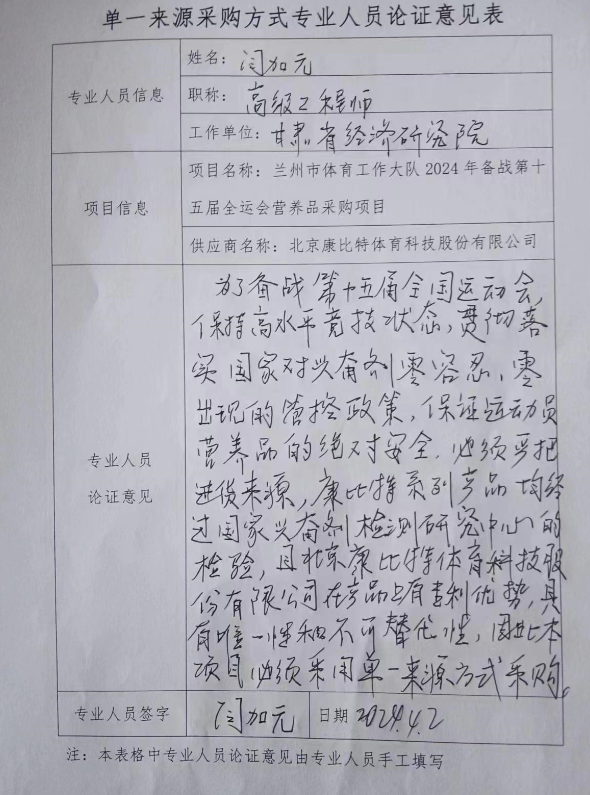 单一来源采购方式专业人员论证意见表
专业人员信息
姓名：闫加元
职称：高级工程师
工作单位：甘肃省经济研究院
项目信息
项目名称：兰州市体育工作大队2024年备战第十
五届全运会营养品采购项目
供应商名称：北京康比特体育科技股份有限公司
专业人员
论证意见
为了备战第十五届全国运动会，
保持高水平竞技状态，贯彻落
实国家对兴奋剂零容忍、零
出现的管控政策，保证运动员
营养品的绝对安全，必须严把
进货来源，康比特系列产品均经
过国家兴奋剂检测研究中心的
检验，且北京康比特体育科技股
份有限公司在产品上有专利优势，具
有唯一性和不可替代性，因此本
项目必须采用单一来源方式采购。
专业人员签字
闫加元
日期 2024.4.2
注：本表格中专业人员论证意见由专业人员手工填写